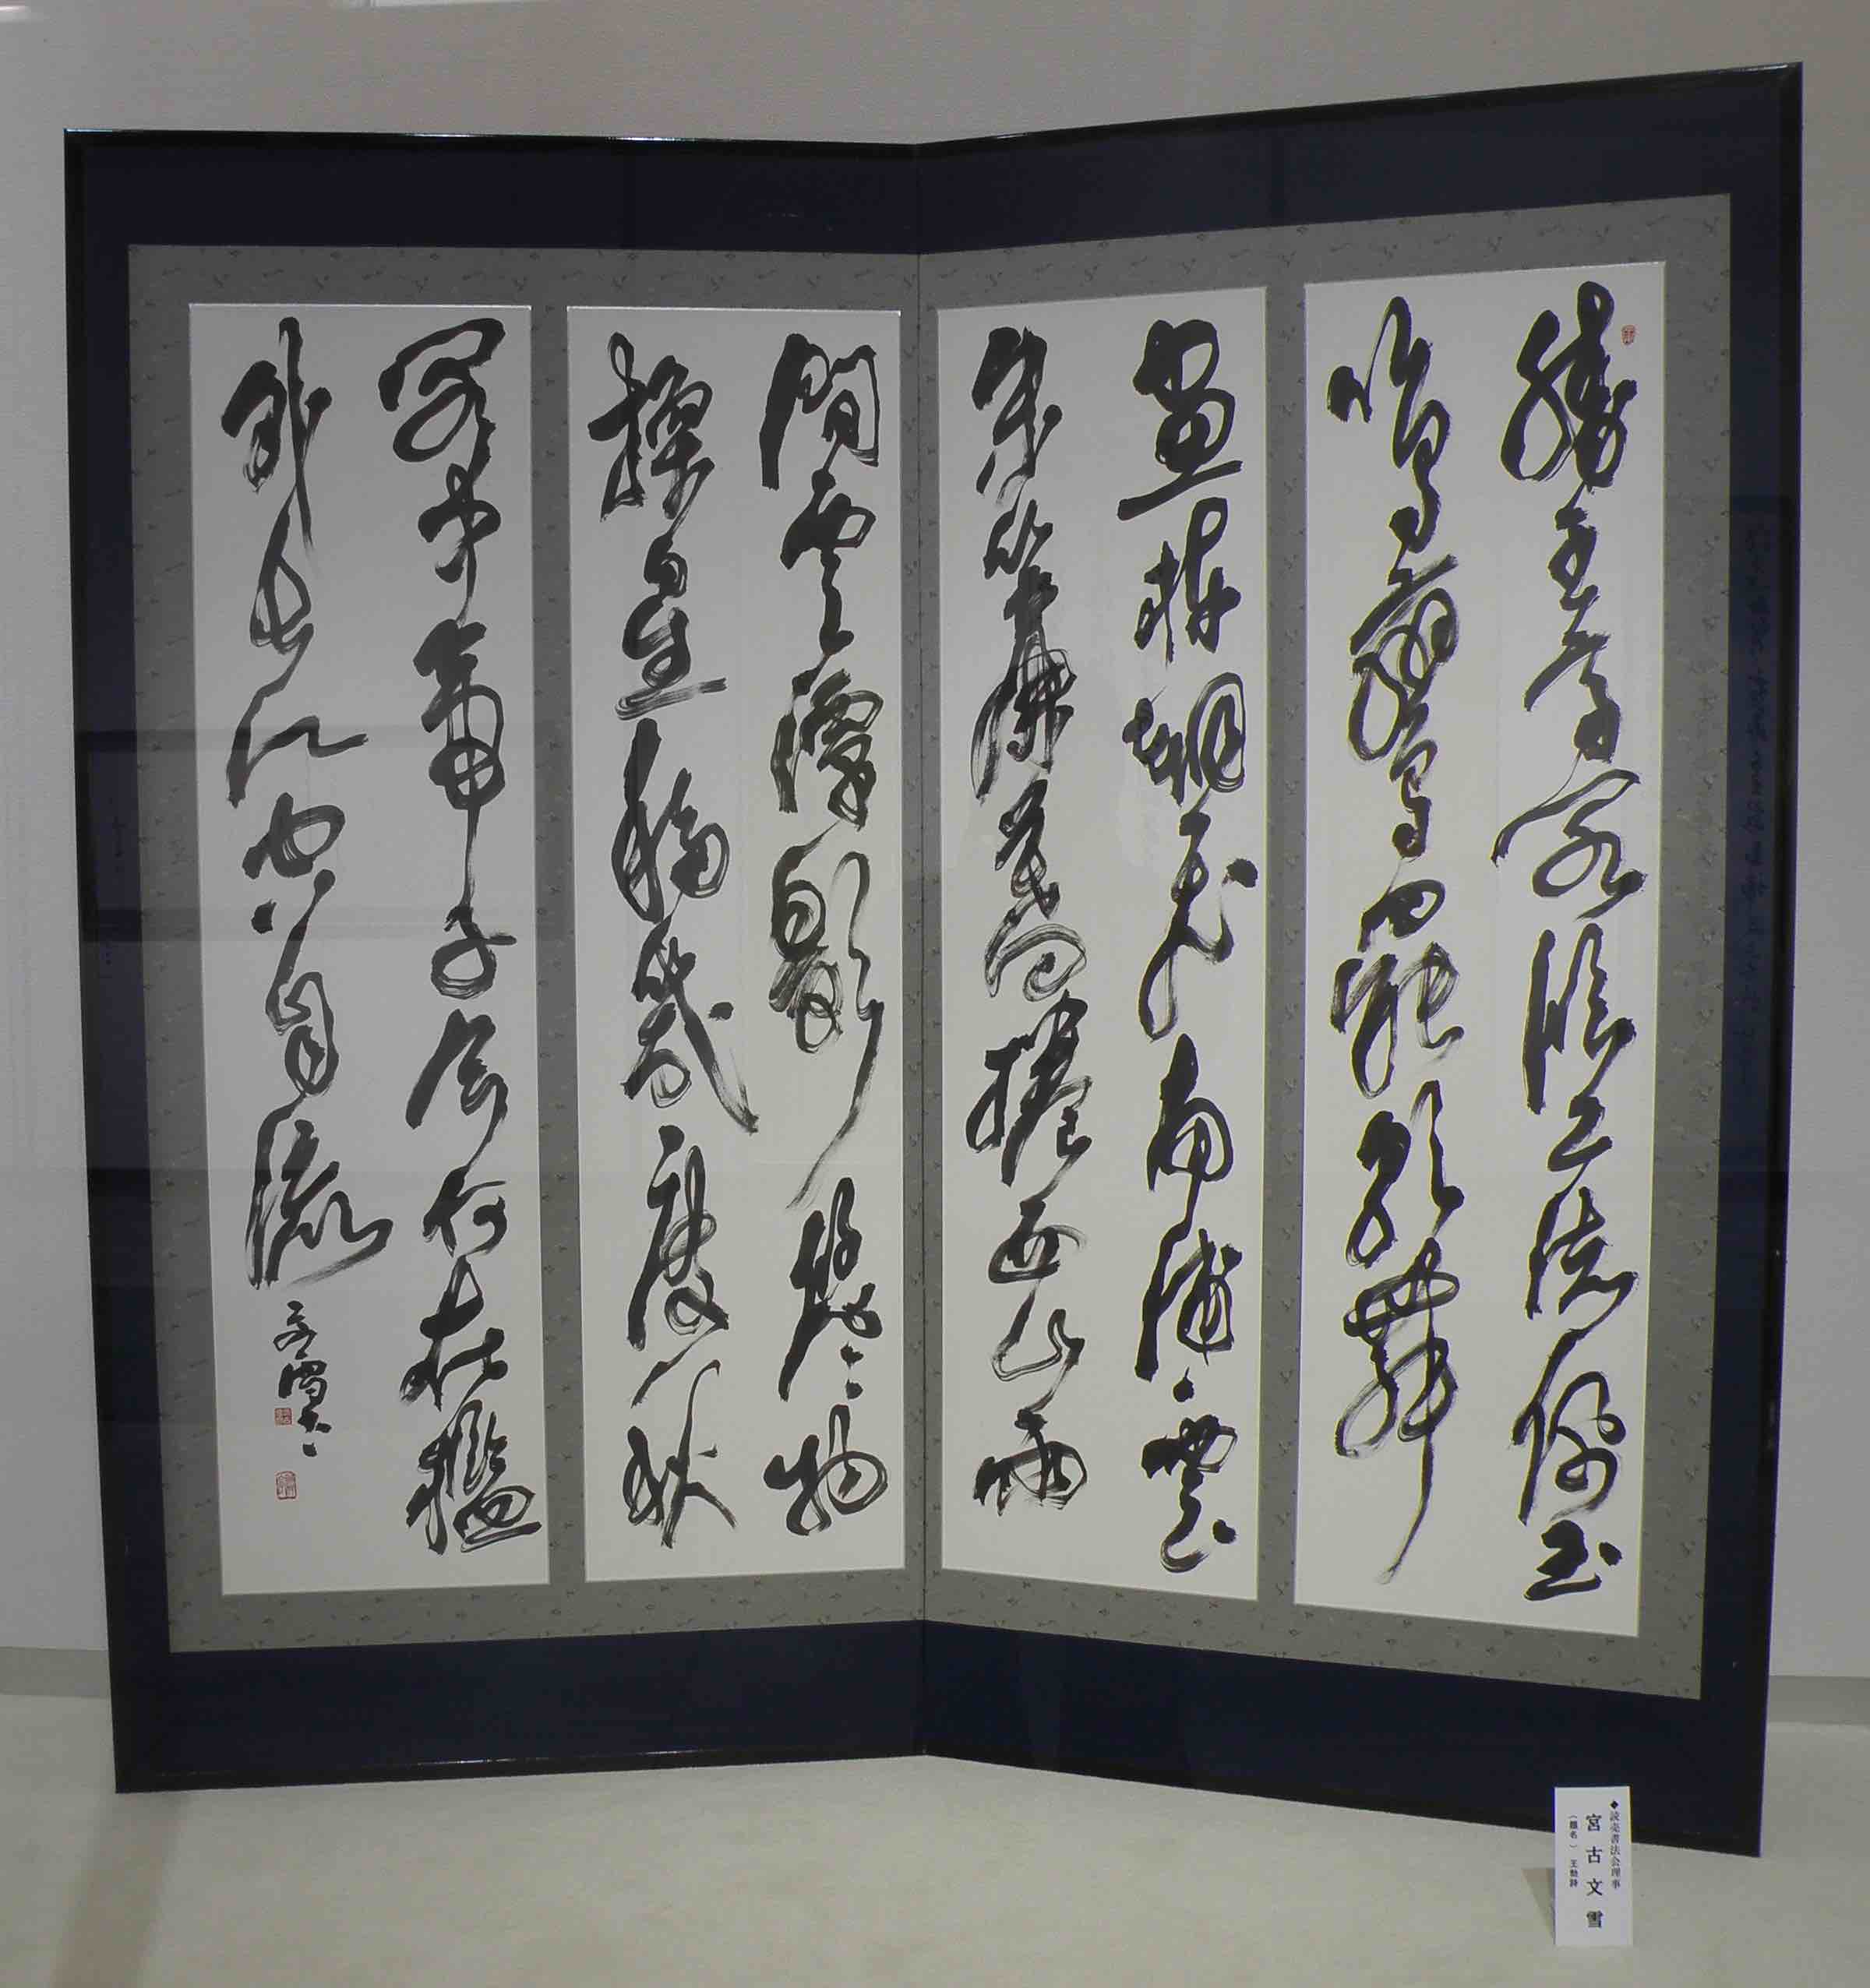 滕王高閣臨江渚佩玉
鳴鸞罷歌舞
畫棟朝飛南浦雲
朱簾暮捲西山雨
閒雲潭影日悠々物
換星移幾度秋
閣中帝子今何在檻
外長江空自流 文雪
◆読売書法会理事
宮古文雪
(題名) 王勃詩